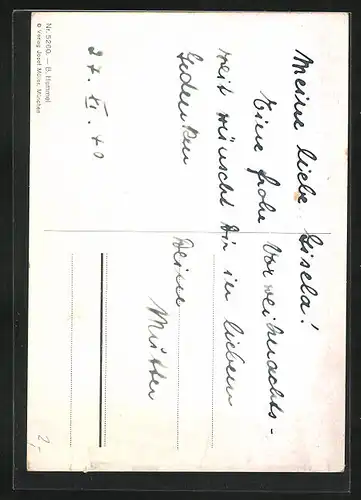 Meine liebe Gisela!
Eine frohe Vorweihnachts-
zeit wünscht Dir in liebem
Gedenken
Deine
Mutter
27. XI. 40
Nr. 5260. — B. Hummel
© Verlag Josef Müller, München
2,-